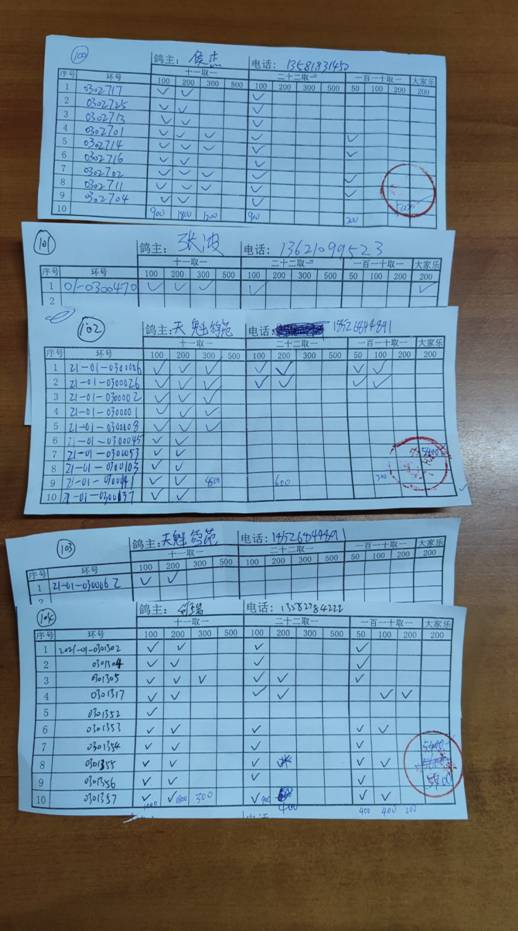 100 鸽主：侯杰 电话：13581831450
序号 环号 十一取一 二十二取一 一百一十取一 大家乐
100 200 300 500 100 200 300 500 50 100 200 200
1 0302717 ✓ ✓ ✓
2 0302725 ✓ ✓ ✓
3 0302713 ✓ ✓ ✓
4 0302701 ✓ ✓ ✓ ✓ ✓
5 0302714 ✓ ✓ ✓ ✓ ✓
6 0302716 ✓ ✓ ✓
7 0302702 ✓ ✓ ✓ ✓ ✓
8 0302711 ✓ ✓ ✓ ✓ ✓
9 0302704 ✓ ✓ ✓
10 900 900 200
101 鸽主：张波 电话：13621099523
序号 环号 十一取一 二十二取一 一百一十取一 大家乐
100 200 300 500 100 200 300 500 50 100 200 200
1 01-0300470 ✓ ✓ ✓ ✓ ✓
2
102 鸽主：天魁鸽苑 电话：18526844891
序号 环号 十一取一 二十二取一 一百一十取一 大家乐
100 200 300 500 100 200 300 500 50 100 200 200
1 21-01-0300006 ✓ ✓ ✓ ✓ ✓ ✓ ✓
2 21-01-0300026 ✓ ✓ ✓ ✓ ✓ ✓ ✓
3 21-01-0300002 ✓ ✓ ✓
4 21-01-0300001 ✓ ✓ ✓
5 21-01-0300008 ✓ ✓ ✓
6 21-01-0300045 ✓ ✓
7 21-01-0300053 ✓ ✓
8 21-01-0300103 ✓ ✓
9 ✓ ✓ 600
10 ✓ ✓
103 鸽主：天魁鸽苑 电话：18526844891
序号 环号 十一取一 二十二取一 一百一十取一 大家乐
100 200 300 500 100 200 300 500 50 100 200 200
1 21-01-0300062 ✓ ✓
104 鸽主： 电话：13582784222
序号 环号 十一取一 二十二取一 一百一十取一 大家乐
100 200 300 500 100 200 300 500 50 100 200 200
1 2021-01-0301302 ✓ ✓ ✓ ✓
2 0301304 ✓ ✓ ✓ ✓
3 0301305 ✓ ✓ ✓ ✓ ✓ ✓
4 0301317 ✓ ✓ ✓ ✓ ✓ ✓
5 0301352 ✓
6 0301353 ✓ ✓ ✓ ✓ ✓
7 0301354 ✓ ✓ ✓ ✓
8 0301355 ✓ ✓ ✓ ✓ ✓
9 0301356 ✓ ✓ ✓ ✓
10 0301357 ✓ ✓ 300 ✓ 900 ✓ ✓
400 400 400